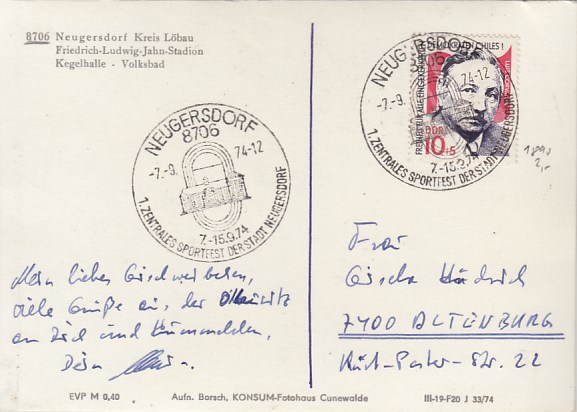 8706 Neugersdorf Kreis Löbau
Friedrich-Ludwig-Jahn-Stadion
Kegelhalle - Volksbad
NEUGERSDORF
8706
-7.-9. 74-12
7.-15.9.74
1. ZENTRALES SPORTFEST DER STADT NEUGERSDORF
NEUGERSDORF
8706
-7.-9. 74-12
7.-15.9.74
1. ZENTRALES SPORTFEST DER STADT NEUGERSDORF
DEMOKRATEN CHILES!
FREIHEIT FÜR ALLE
DDR
10+5
1890
2,-
Mein liebes
viele Grüße aus der
an Dich und
Dein
Frau
Gisela
7400 ALTENBURG
Str. 22
EVP M 0,40 Aufn. Borsch, KONSUM-Fotohaus Cunewalde III-19-F20 J 33/74